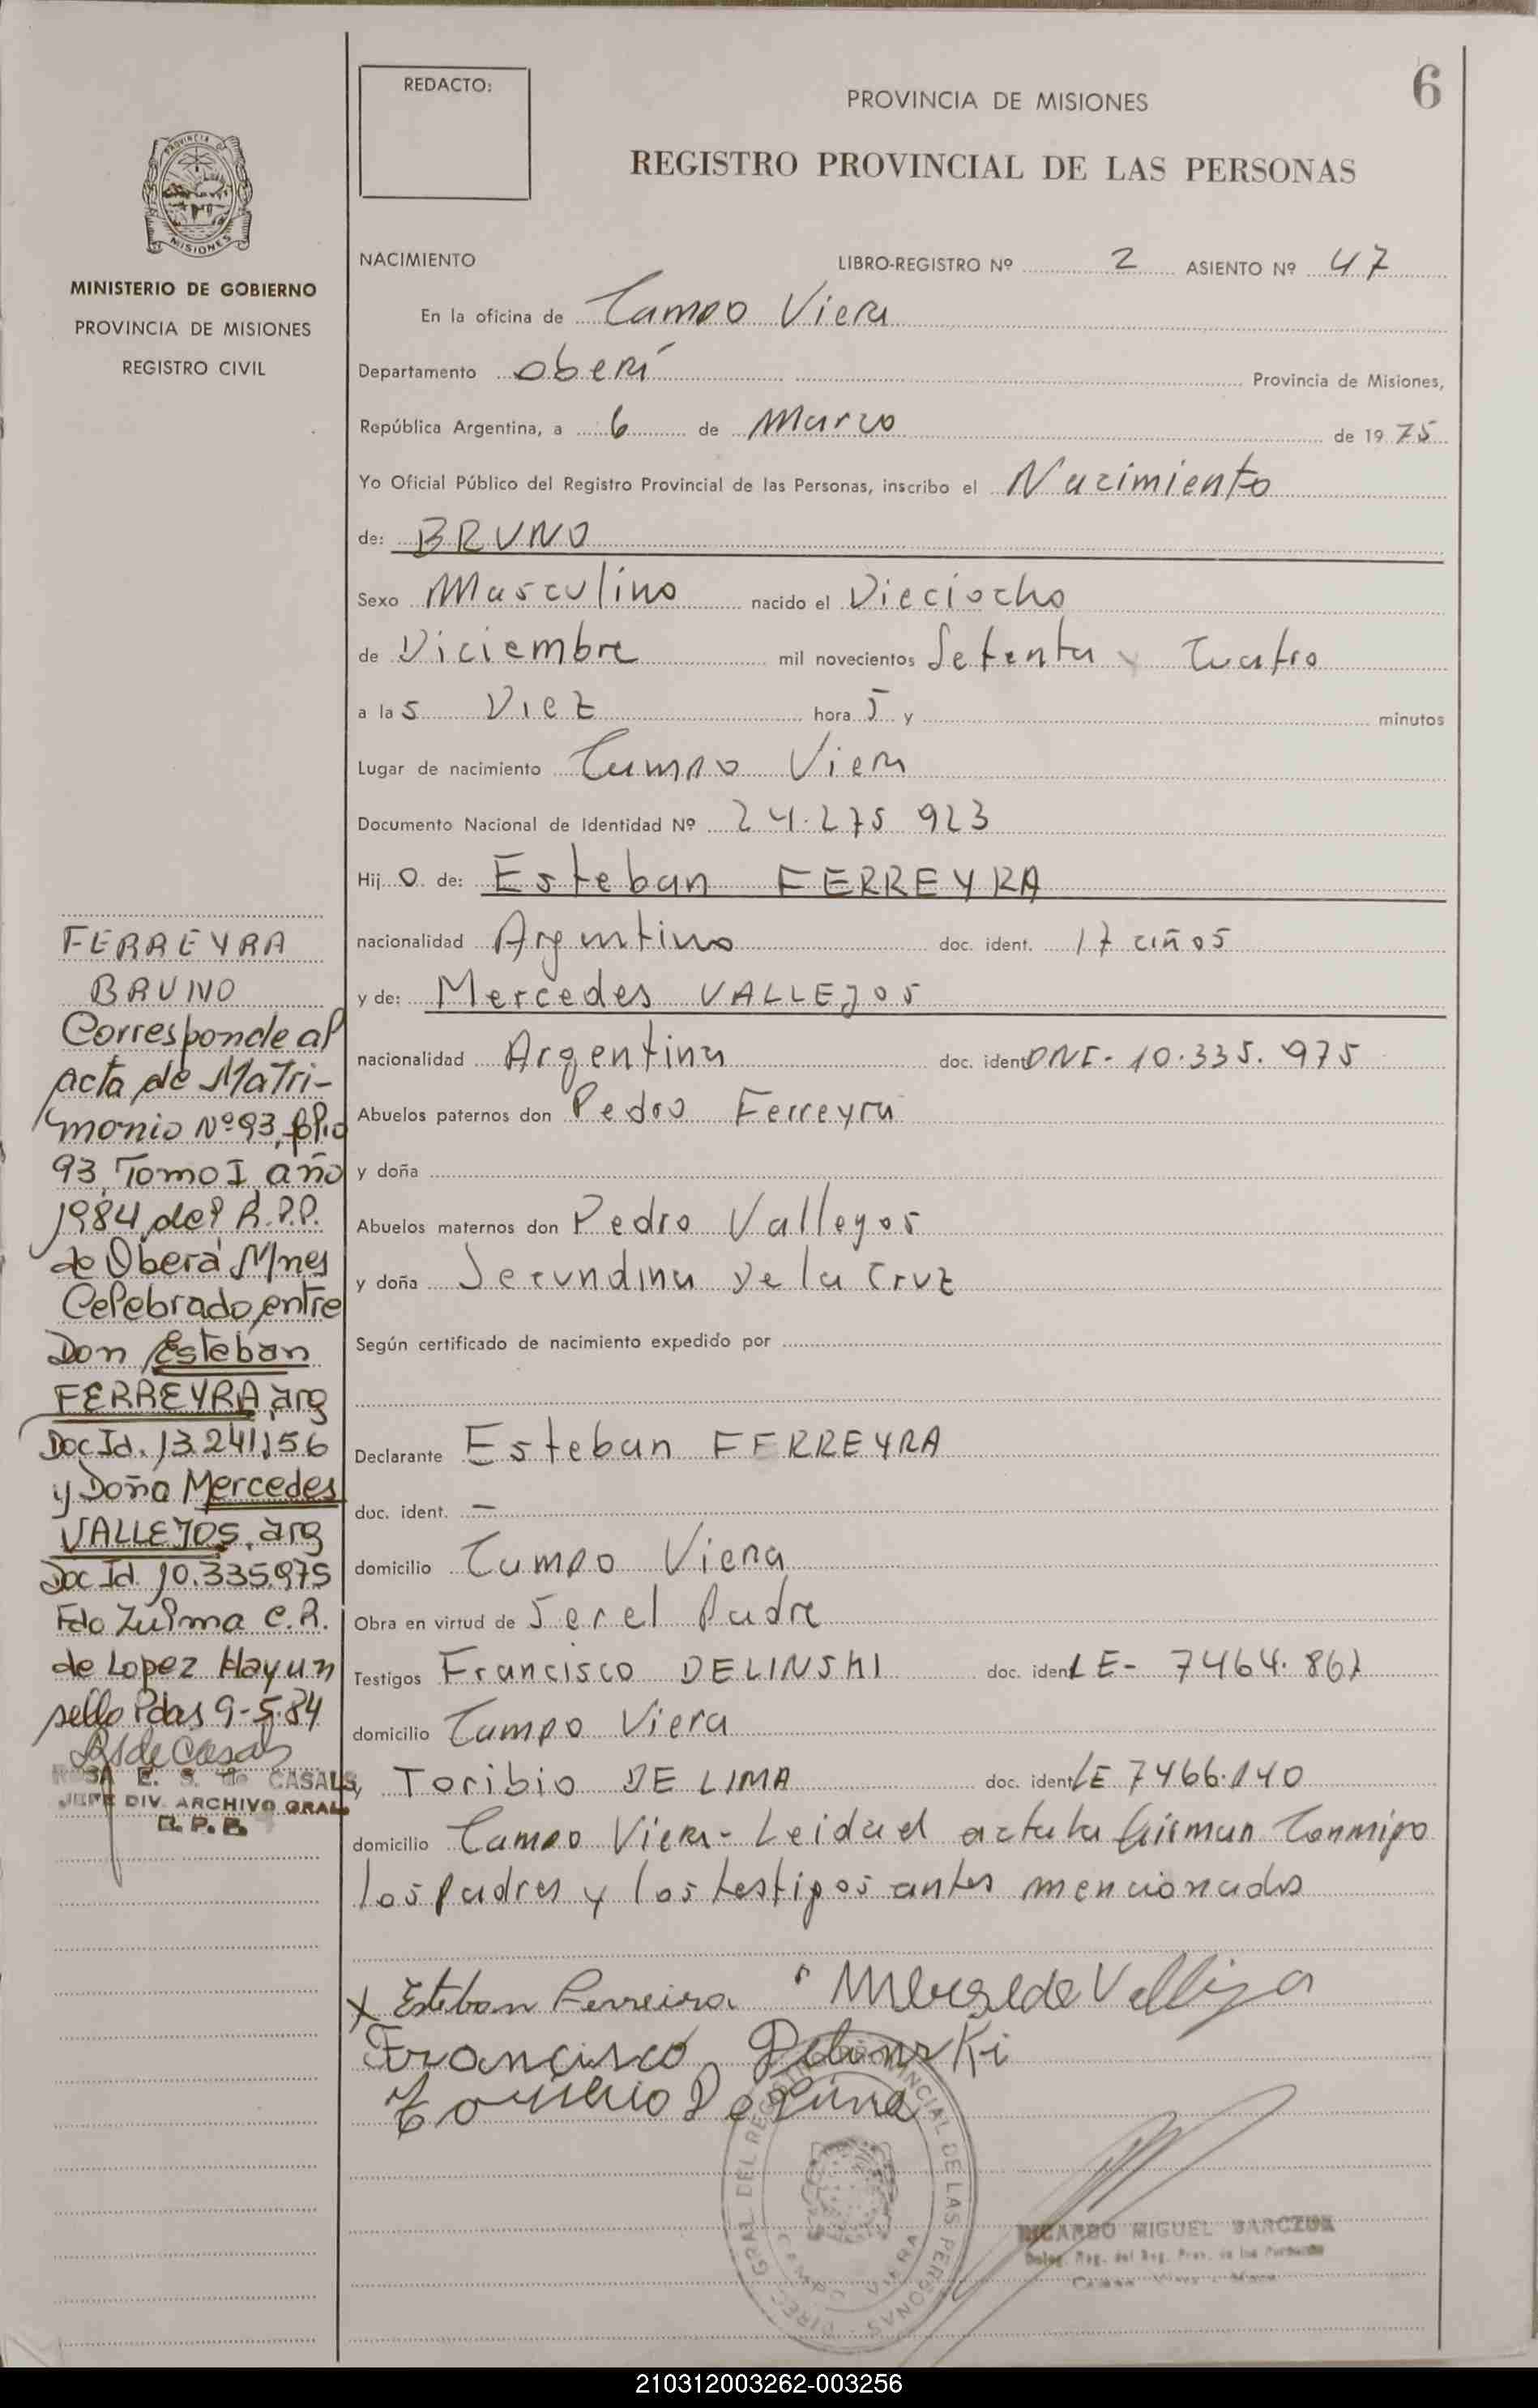 REDACTO:
PROVINCIA DE MISIONES
6
REGISTRO PROVINCIAL DE LAS PERSONAS
PROVINCIA DE
MISIONES
MINISTERIO DE GOBIERNO
PROVINCIA DE MISIONES
REGISTRO CIVIL
NACIMIENTO
LIBRO-REGISTRO Nº 2 ASIENTO Nº 47
En la oficina de Campo Viera
Departamento Oberá Provincia de Misiones,
República Argentina, a 6 de Marzo de 1975
Yo Oficial Público del Registro Provincial de las Personas, inscribo el Nacimiento
de: BRUNO
Sexo Masculino nacido el Dieciocho
de Diciembre mil novecientos Setenta y Cuatro
a las Diez horas y minutos
Lugar de nacimiento Campo Viera
Documento Nacional de Identidad Nº 24.275 923
Hijo de: Esteban FERREYRA
nacionalidad Argentino doc. ident. 17 años
y de: Mercedes VALLEJOS
nacionalidad Argentina doc. ident DNI- 10.335.975
Abuelos paternos don Pedro Ferreyra
y doña
Abuelos maternos don Pedro Valleyos
y doña Secundina De la Cruz
Según certificado de nacimiento expedido por
Declarante Esteban FERREYRA
doc. ident. —
domicilio Campo Viera
Obra en virtud de Ser el Padre
Testigos Francisco DELINSKI doc. ident LE- 7464.862
domicilio Campo Viera
y Toribio DE LIMA doc. ident LE 7466.140
domicilio Campo Viera- Leida el acta la firman Conmigo
los Padres y los testigos antes mencionados
FERREYRA
BRUNO
Corresponde al
acta de Matri-
monio Nº 93, folio
93, Tomo I año
1984 del R.P.P.
de Oberá Mnes
Celebrado entre
Don Esteban
FERREYRA, arg
Doc Id. 13.241.156
y Doña Mercedes
VALLEJOS, arg
Doc Id. 10.335.975
Fdo Zulma C.R.
de Lopez Hay un
sello Pdas 9-5-84
ROSA E. S. de CASALS
JEFE DIV. ARCHIVO GRAL
R.P.P.
X Esteban Ferreira
Francisco Delinski
DIREC. GRAL. DEL REGISTRO PROVINCIAL DE LAS PERSONAS
CAMPO VIERA
RICARDO MIGUEL BARCZUK
Deleg. Reg. del Reg. Prov. de las Personas
210312003262-003256